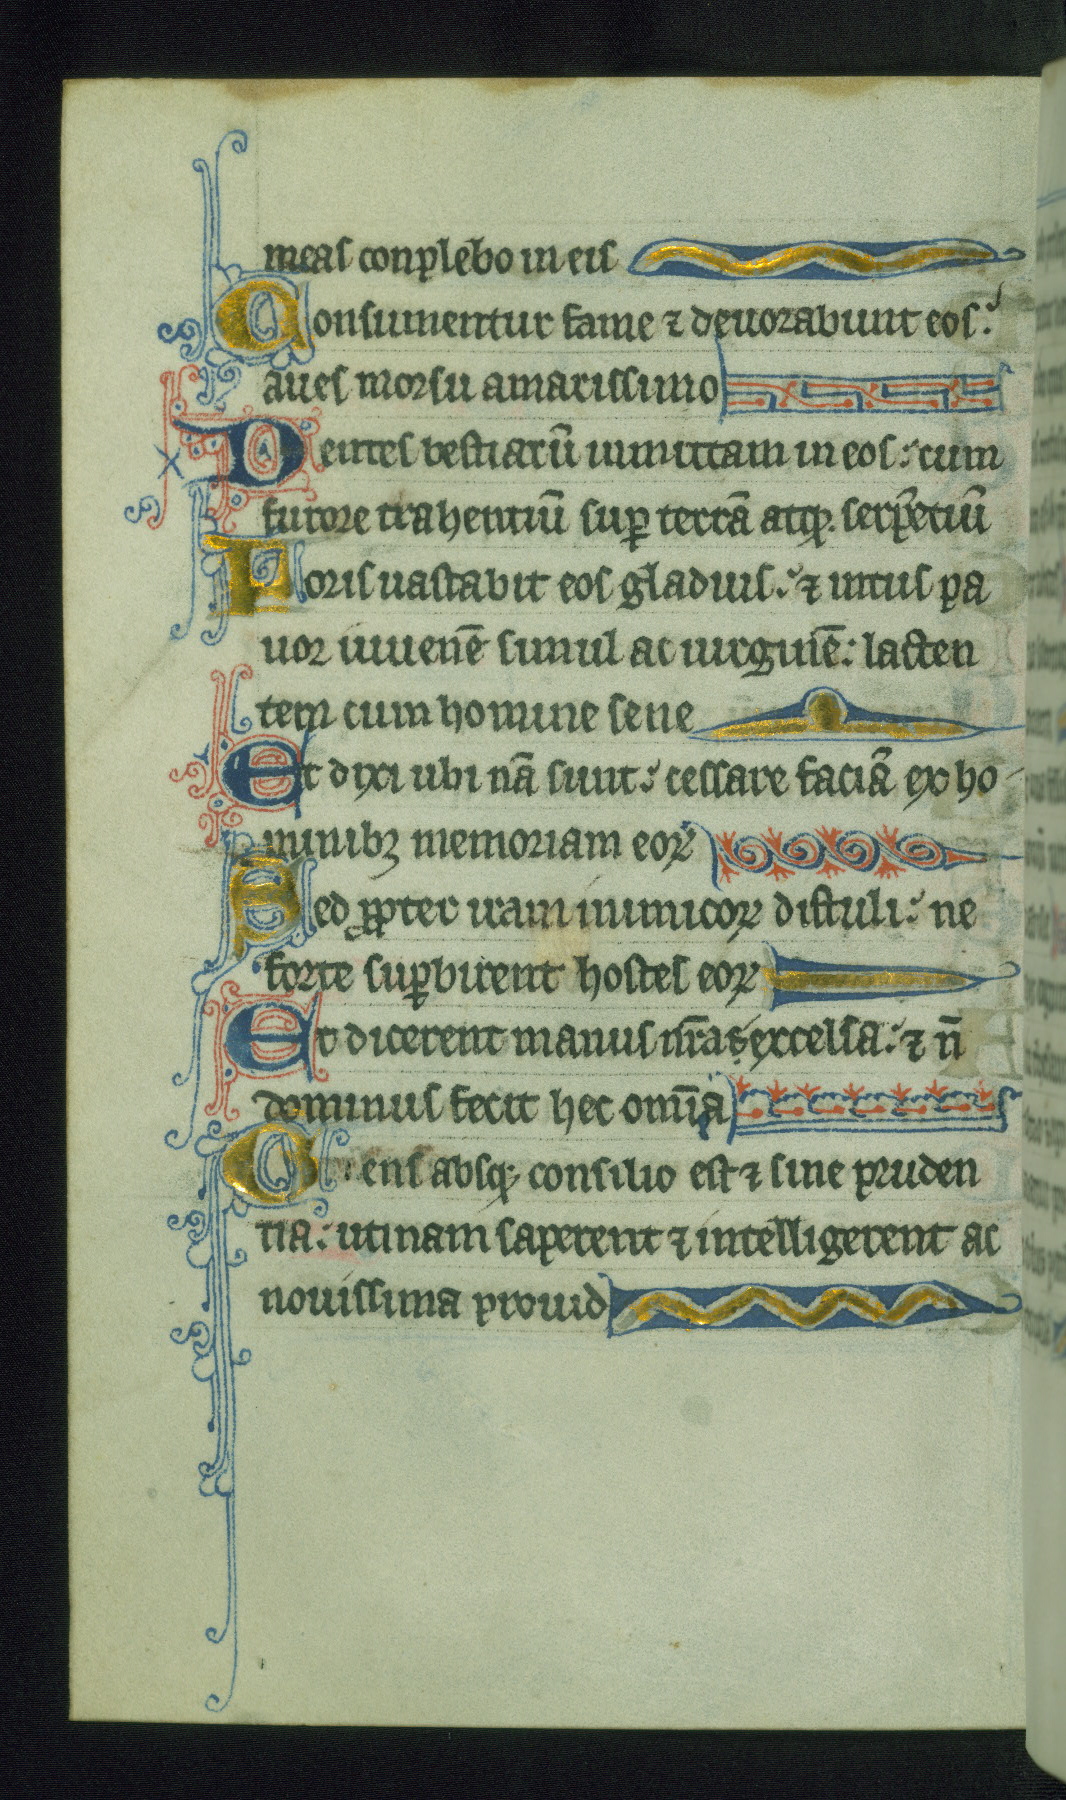 meas conplebo in eis
Consumentur fame ⁊ deuorabunt eos:
aues morsu amarissimo
Dentes bestiarū inmittam in eos: cum
furore trahentiū suꝑ terrā atqꝫ serpētiū
Foris uastabit eos gladius: ⁊ intus pa
uor iuuenē simul ac uirginē: lacten
tem cum homine sene
Et dixi ubi nā sunt: cessare faciā ex ho
minibꝫ memoriam eoꝝ
Sed ꝓpter iram inimicoꝝ distuli: ne
forte suꝑbirent hostes eoꝝ
Et dicerent manus nr̄a excelsa: ⁊ n̄
dominus fecit hec omīa
Gens absqꝫ consilio est ⁊ sine pruden
tia: utinam saperent ⁊ intelligerent ac
nouissima prouid